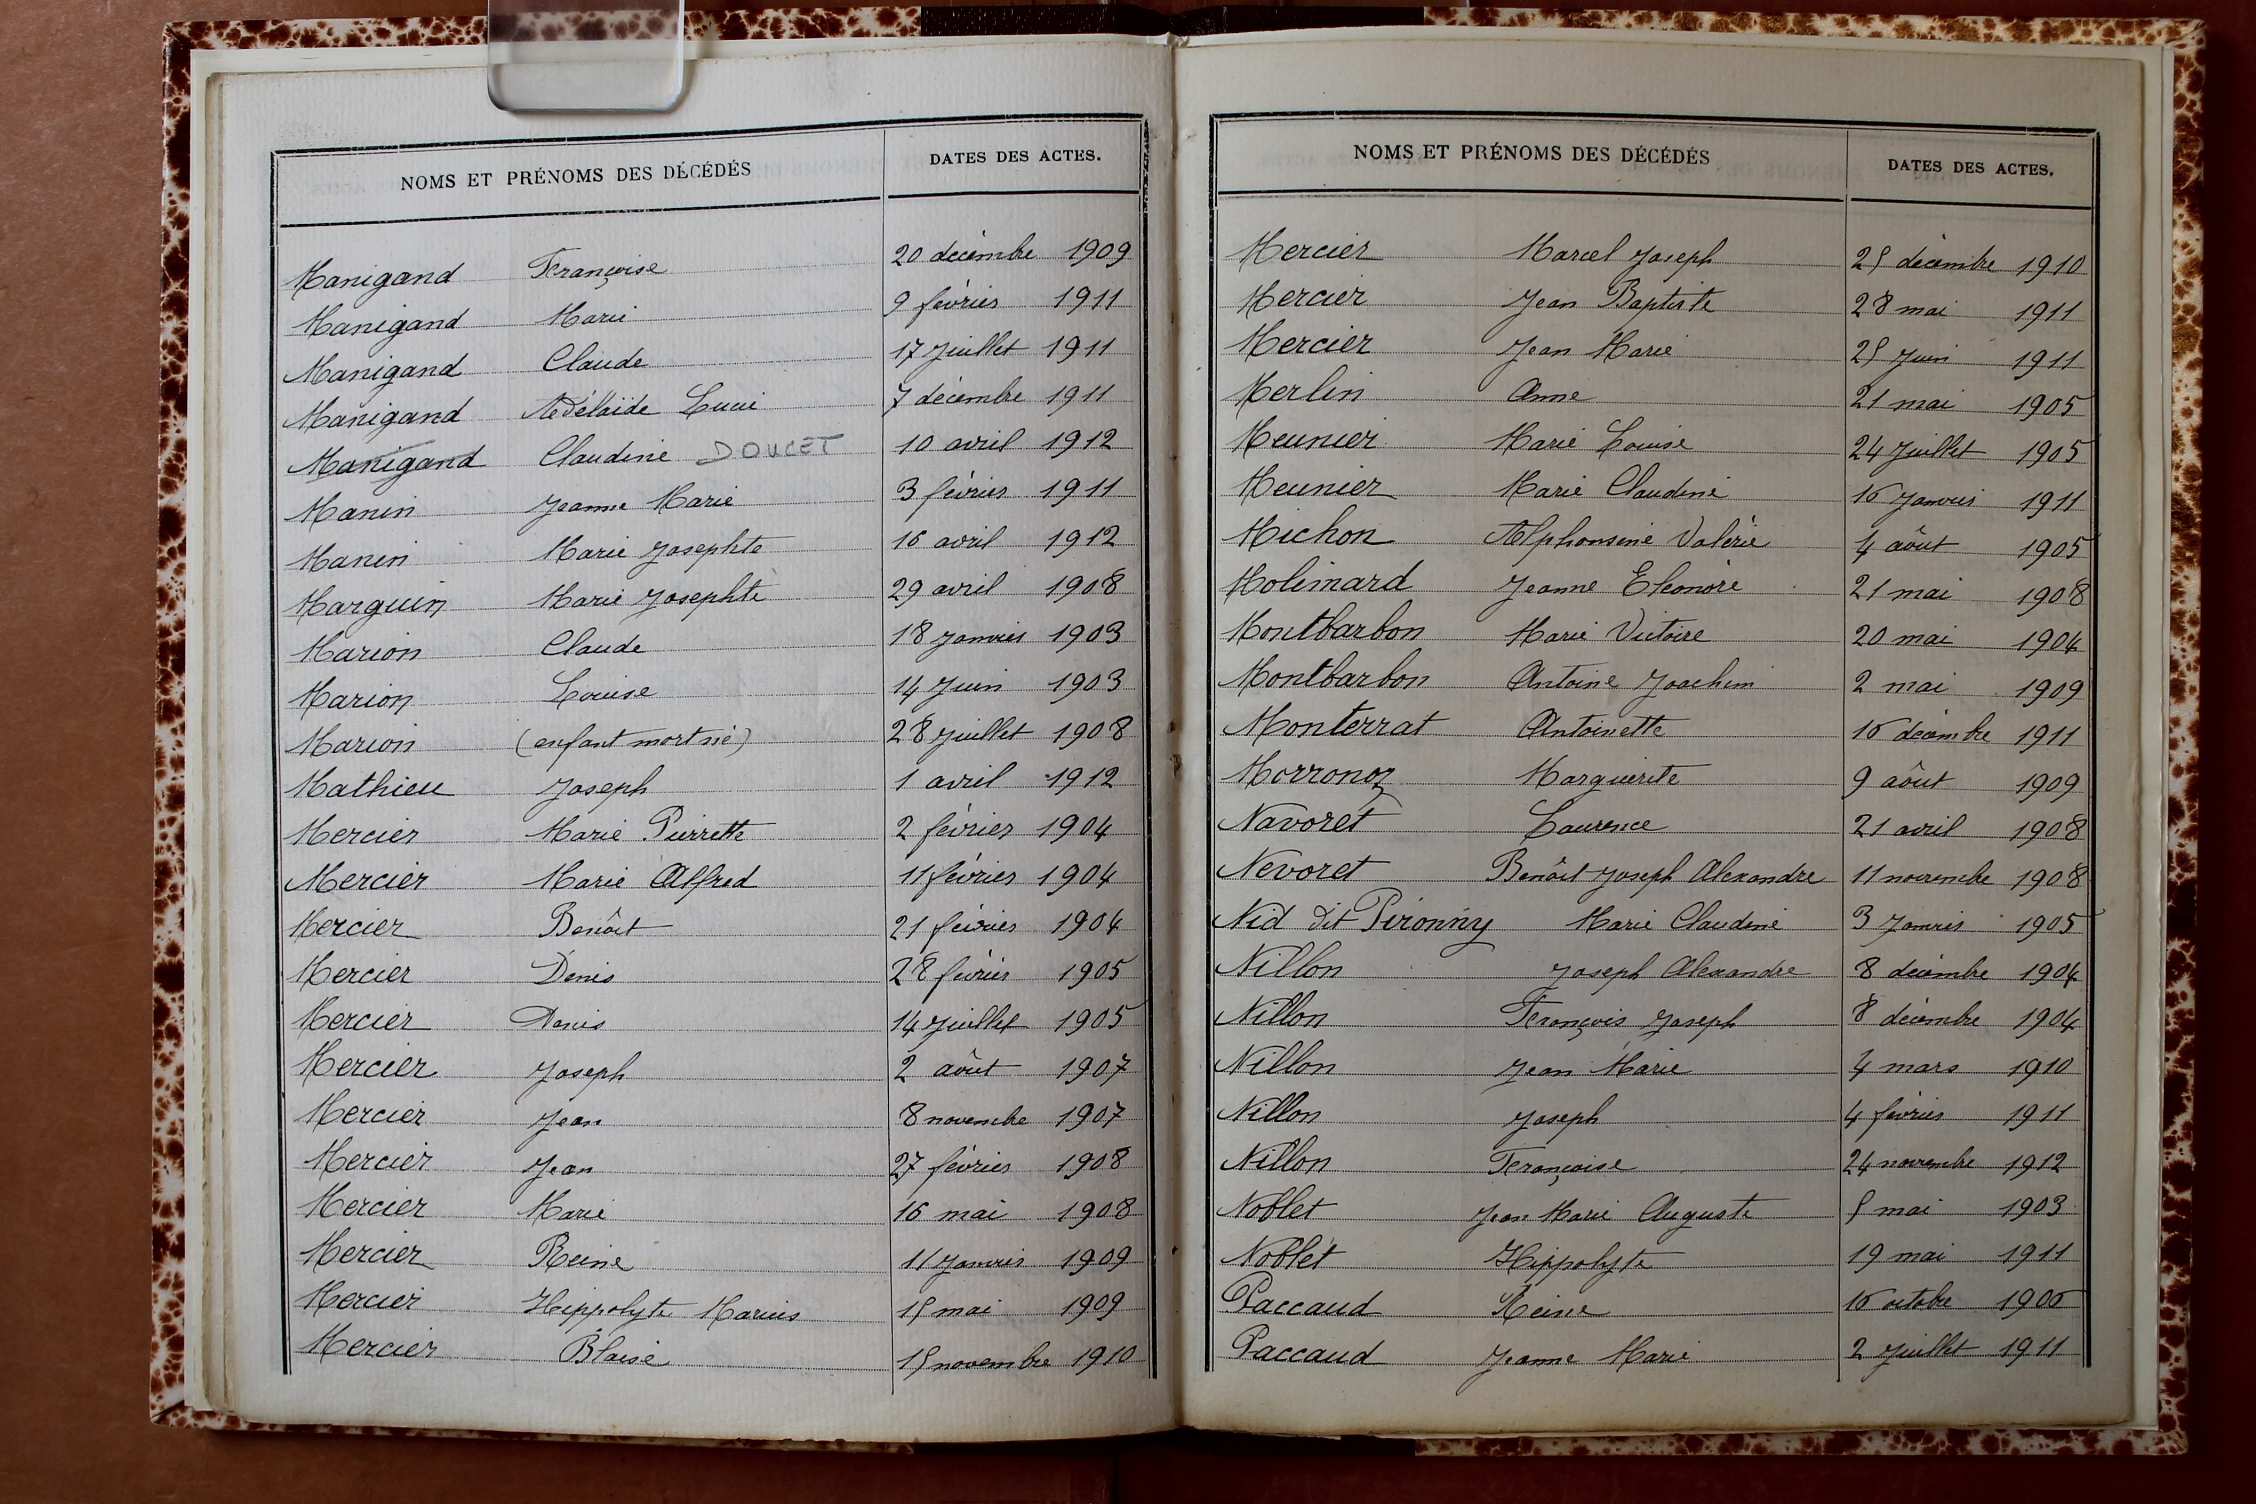 NOMS ET PRÉNOMS DES DÉCÉDÉS DATES DES ACTES.
Manigand Françoise 20 décembre 1909
Manigand Marie 9 février 1911
Manigand Claude 17 Juillet 1911
Manigand Adélaïde Lucie 7 décembre 1911
Manigand Claudine DOUCET 10 avril 1912
Manin Jeanne Marie 3 février 1911
Manin Marie Josephte 16 avril 1912
Marguin Marie Josephte 29 avril 1908
Marion Claude 18 Janvier 1903
Marion Louise 14 Juin 1903
Marion (enfant mort né) 28 Juillet 1908
Mathieu Joseph 1 avril 1912
Mercier Marie Pierrette 2 février 1904
Mercier Marie Alfred 11 février 1904
Mercier Benôit 21 février 1904
Mercier Denis 28 février 1905
Mercier Denis 14 Juillet 1905
Mercier Joseph 2 août 1907
Mercier Jean 8 novembre 1907
Mercier Jean 27 février 1908
Mercier Marie 16 mai 1908
Mercier Reine 11 Janvier 1909
Mercier Hippolyte Marius 15 mai 1909
Mercier Blaise 15 novembre 1910
NOMS ET PRÉNOMS DES DÉCÉDÉS DATES DES ACTES.
Mercier Marcel Joseph 25 décembre 1910
Mercier Jean Baptiste 28 mai 1911
Mercier Jean Marie 25 Juin 1911
Merlin Anne 21 mai 1905
Meunier Marie Louise 24 Juillet 1905
Meunier Marie Claudine 16 Janvier 1911
Michon Alphonsine Valérie 4 août 1905
Molimard Jeanne Eléonore 21 mai 1908
Montbarbon Marie Victoire 20 mai 1904
Montbarbon Antoine Joachim 2 mai 1909
Monterrat Antoinette 16 décembre 1911
Morronoz Marguerite 9 août 1909
Navoret Laurence 21 avril 1908
Nevoret Benôit Joseph Alexandre 11 novembre 1908
Nid dit Pironny Marie Claudine 3 Janvier 1905
Nillon Joseph Alexandre 8 décembre 1904
Nillon François Joseph 8 décembre 1904
Nillon Jean Marie 4 mars 1910
Nillon Joseph 4 février 1911
Nillon Françoise 24 novembre 1912
Noblet Jean Marie Auguste 5 mai 1903
Noblet Hippolyte 19 mai 1911
Paccaud Reine 16 octobre 1906
Paccaud Jeanne Marie 2 Juillet 1911